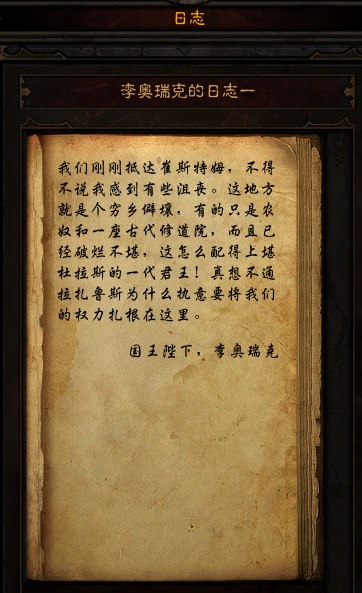 日志
李奥瑞克的日志一
我们刚刚抵达崔斯特姆，不得
不说我感到有些沮丧。这地方
就是个穷乡僻壤，有的只是农
奴和一座古代修道院，而且已
经破烂不堪，这怎么配得上堪
杜拉斯的一代君王！真想不通
拉扎鲁斯为什么执意要将我们
的权力扎根在这里。
国王陛下，李奥瑞克